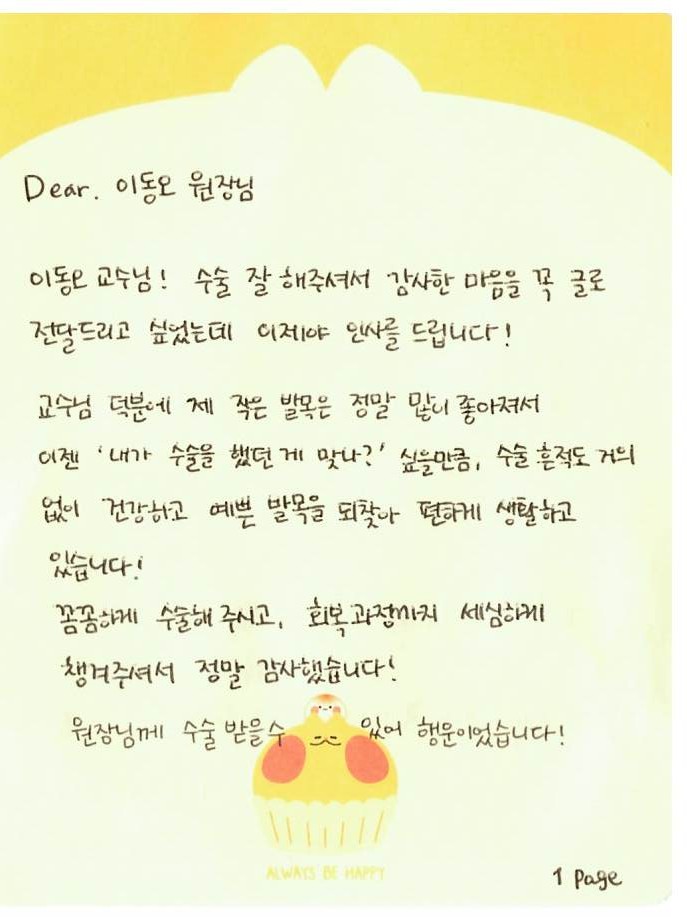 Dear. 이동오 원장님
이동오 교수님! 수술 잘 해주셔서 감사한 마음을 꼭 글로
전달드리고 싶었는데 이제야 인사를 드립니다!
교수님 덕분에 제 작은 발목은 정말 많이 좋아져서
이젠 '내가 수술을 했던 게 맞나?' 싶을만큼, 수술 흔적도 거의
없이 건강하고 예쁜 발목을 되찾아 편하게 생활하고
있습니다!
꼼꼼하게 수술해 주시고, 회복과정까지 세심하게
챙겨주셔서 정말 감사했습니다!
원장님께 수술 받을수 있어 행운이었습니다!
ALWAYS BE HAPPY
1 page